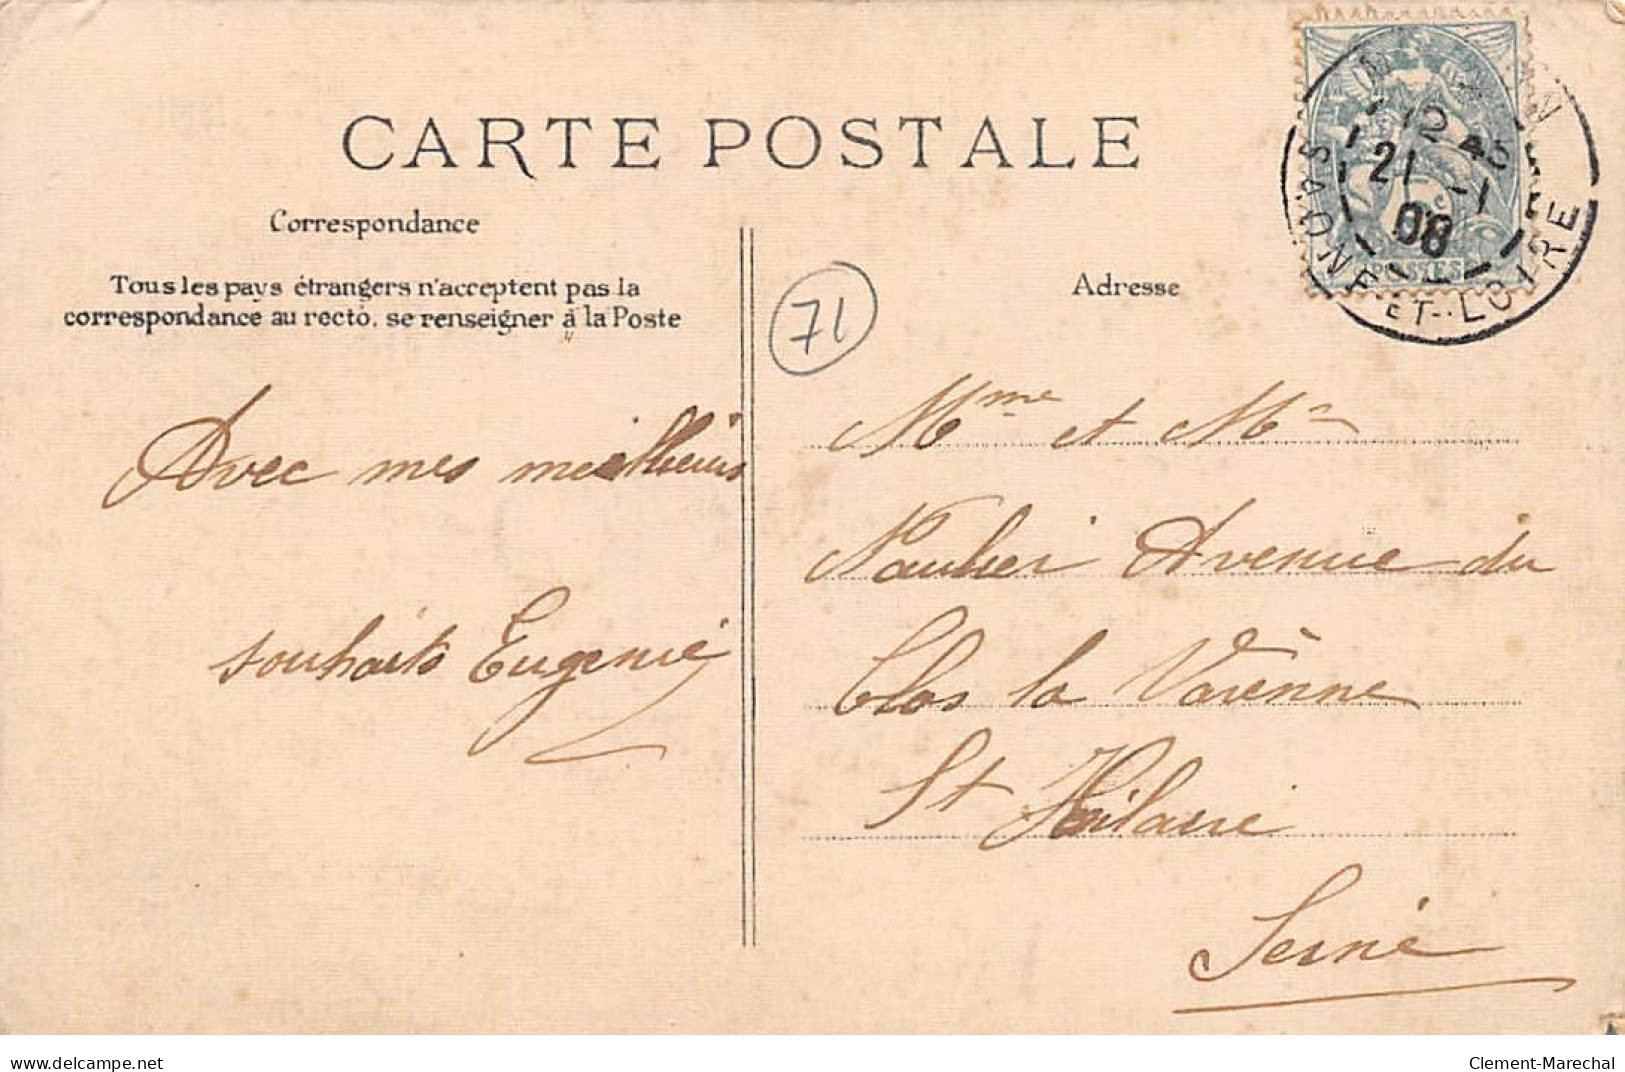 CARTE POSTALE
Correspondance
Tous les pays étrangers n'acceptent pas la
correspondance au recto, se renseigner à la Poste
Adresse
71
12 45
21 - 1
08
SAÔNE-ET-LOIRE
POSTES
Avec mes meilleurs
souhaits Eugénie
Mme et Mr
Naulier Avenue du
Clos la Varenne
St Hilaire
Seine
delcampe.net
Clement-Marechal